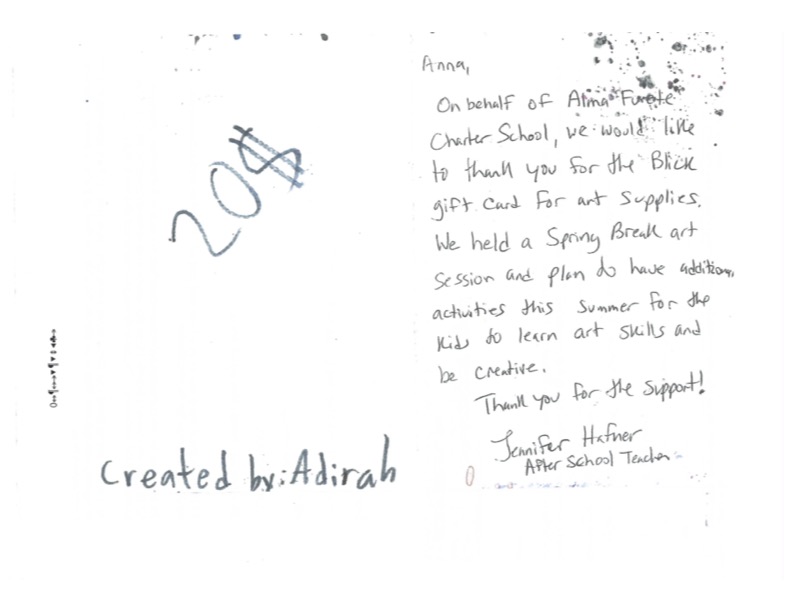 20$
Created by: Adirah
Anna,
On behalf of Alma Fuerte
Charter School, we would like
to thank you for the Blick
gift card for art supplies.
We held a Spring Break art
session and plan to have
activities this summer for the
kids to learn art skills and
be creative.
Thank you for the support!
Jennifer Hafner
After School Teacher